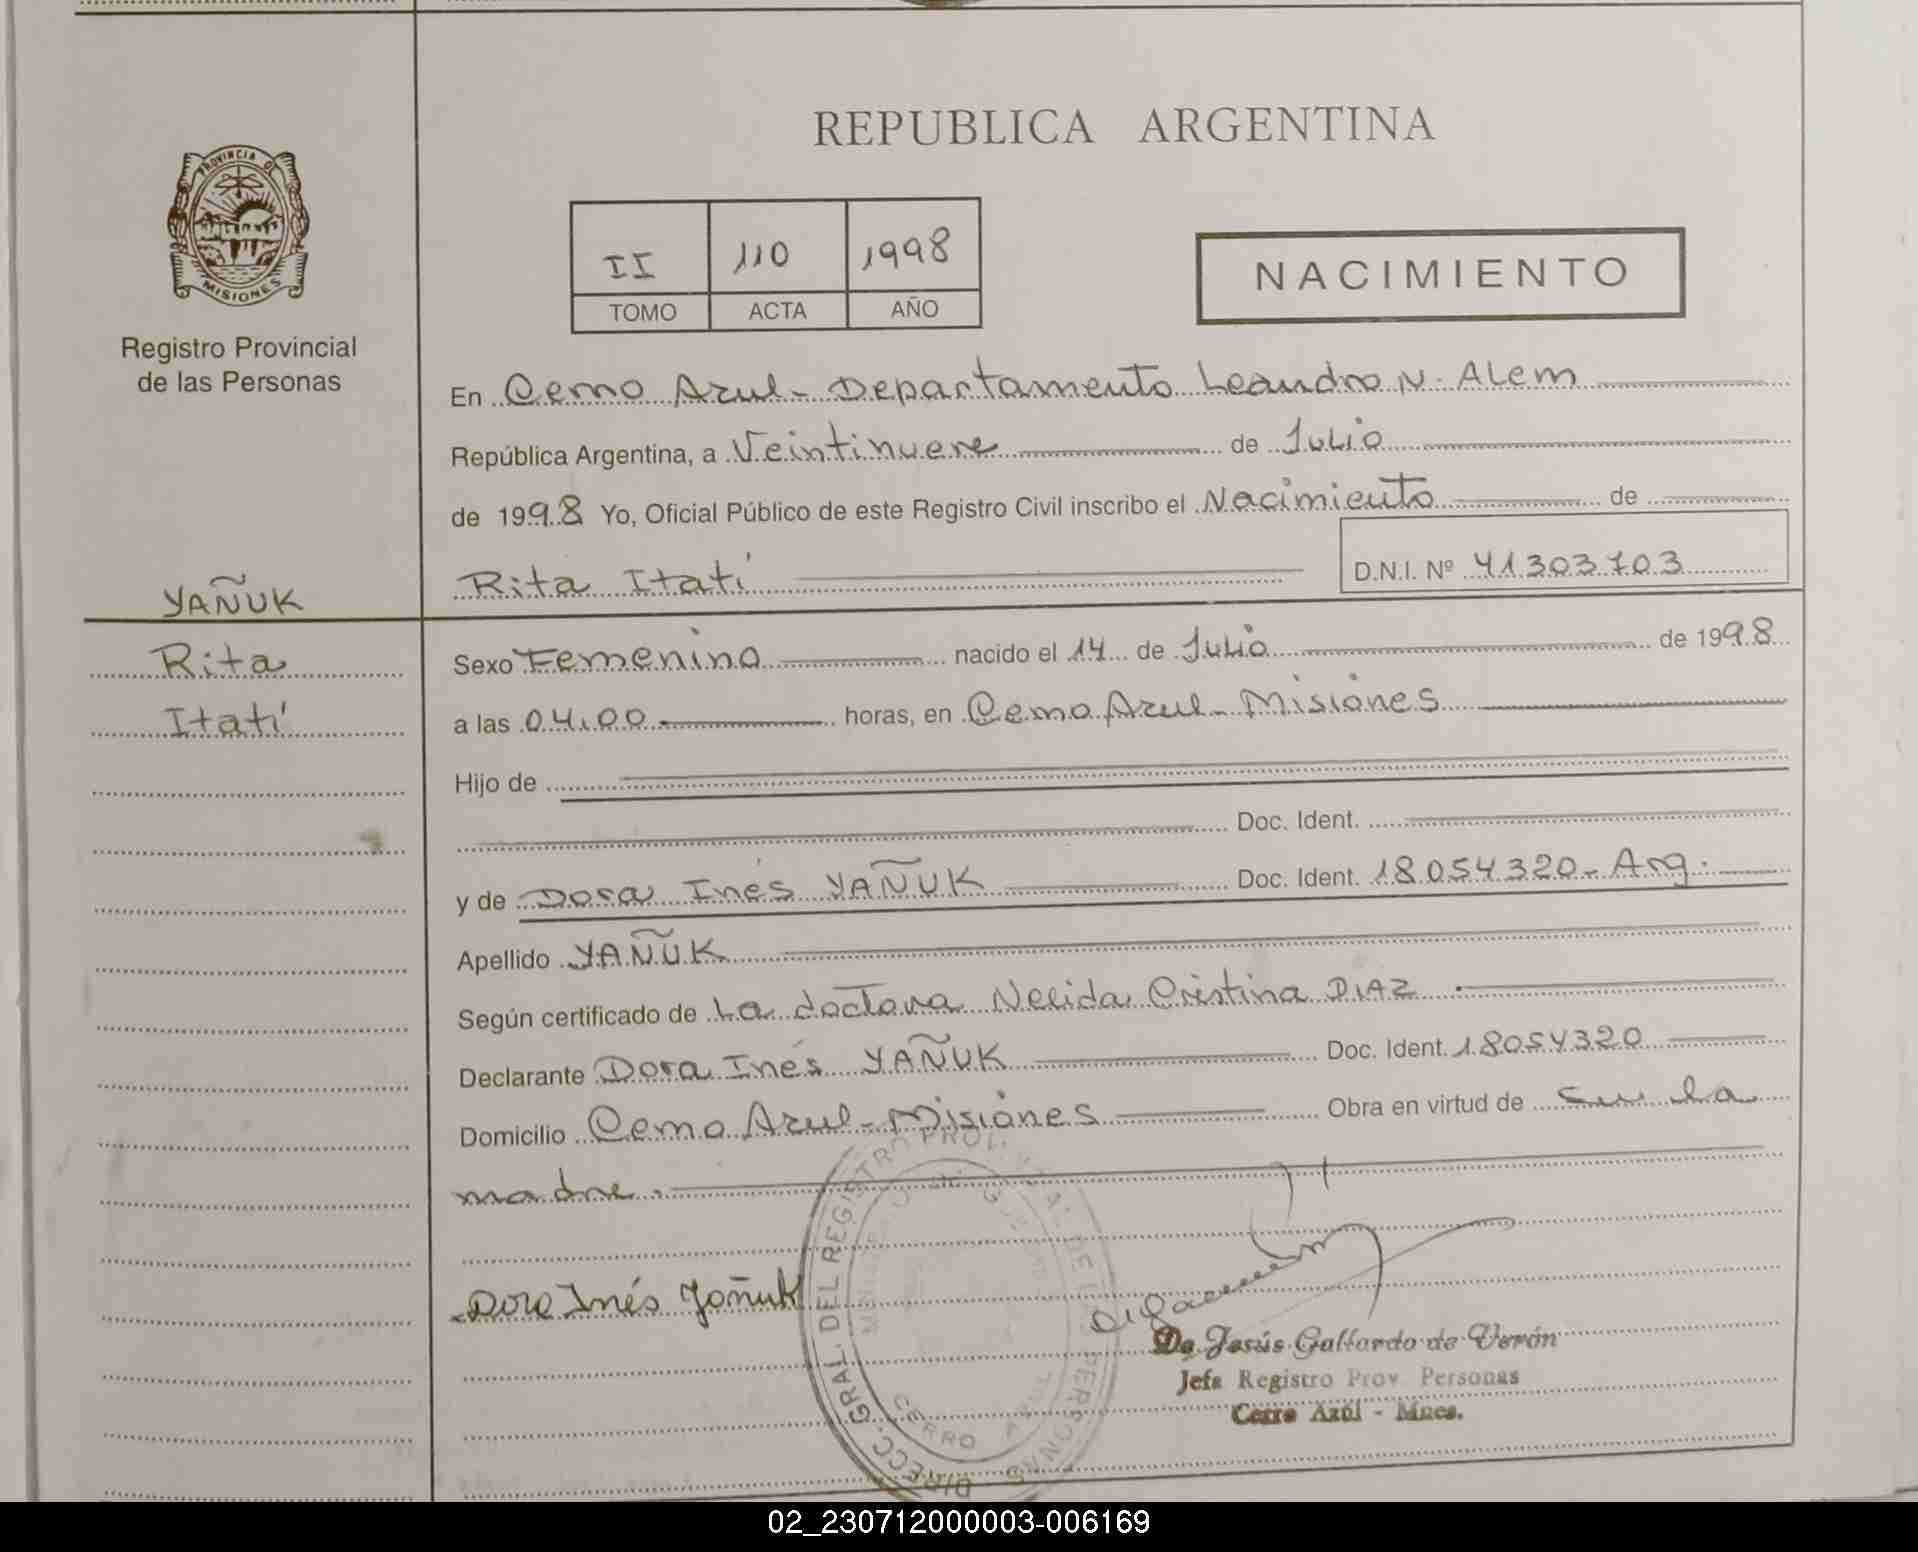 REPUBLICA ARGENTINA
PROVINCIA DE
MISIONES
Registro Provincial
de las Personas
II 110 1998
TOMO ACTA AÑO
NACIMIENTO
En Cerro Azul - Departamento Leandro N. Alem
República Argentina, a Veintinueve de Julio
de 1998 Yo, Oficial Público de este Registro Civil inscribo el Nacimiento de
Rita Itatí D.N.I. Nº 41303703
YAÑUK
Rita
Itatí
Sexo Femenino nacido el 14 de Julio de 1998
a las 04,00.- horas, en Cerro Azul - Misiones
Hijo de
Doc. Ident.
y de Dora Inés YAÑUK Doc. Ident. 18054320 - Arg.
Apellido YAÑUK
Según certificado de La doctora Nelida Cristina DIAZ .
Declarante Dora Inés YAÑUK Doc. Ident. 18054320
Domicilio Cerro Azul - Misiones Obra en virtud de Ser la
madre.
Dora Inés Yañuk
DIRECC. GRAL. DEL REGISTRO PROV. DE LAS PERSONAS
CERRO AZUL
De Jesús Gallardo de Verón
Jefa Registro Prov. Personas
Cerro Azúl - Mnes.
02_230712000003-006169